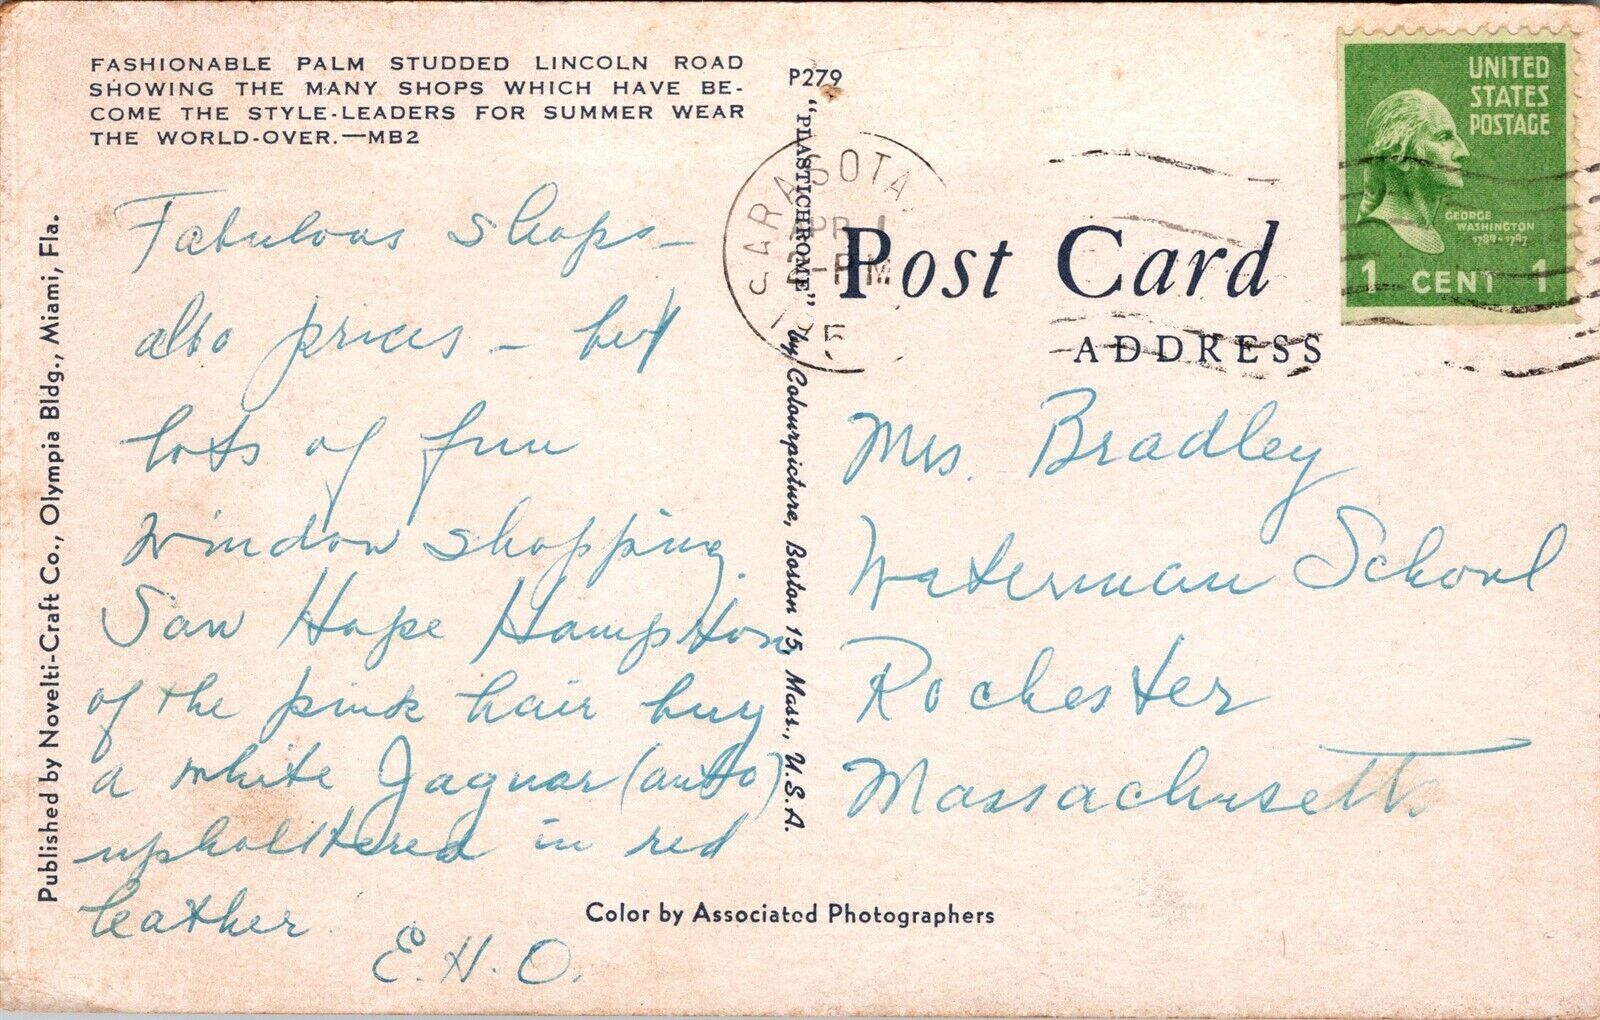 FASHIONABLE PALM STUDDED LINCOLN ROAD
SHOWING THE MANY SHOPS WHICH HAVE BE-
COME THE STYLE-LEADERS FOR SUMMER WEAR
THE WORLD-OVER.—MB2
Fabulous shops –
also prices – but
lots of fun
window shopping.
Saw Hope Hampton
of the pink hair buy
a white Jaguar (auto)
upholstered in red
leather.
E.H.O.
Published by Novelti-Craft Co., Olympia Bldg., Miami, Fla.
P279
"PLASTICHROME" by Colourpicture, Boston 15, Mass., U.S.A.
SARASOTA
APR 1
PM
Post Card
ADDRESS
UNITED
STATES
POSTAGE
GEORGE
WASHINGTON
1789-1797
1 CENT 1
Mrs. Bradley
Waterman School
Rochester
Massachusetts
Color by Associated Photographers